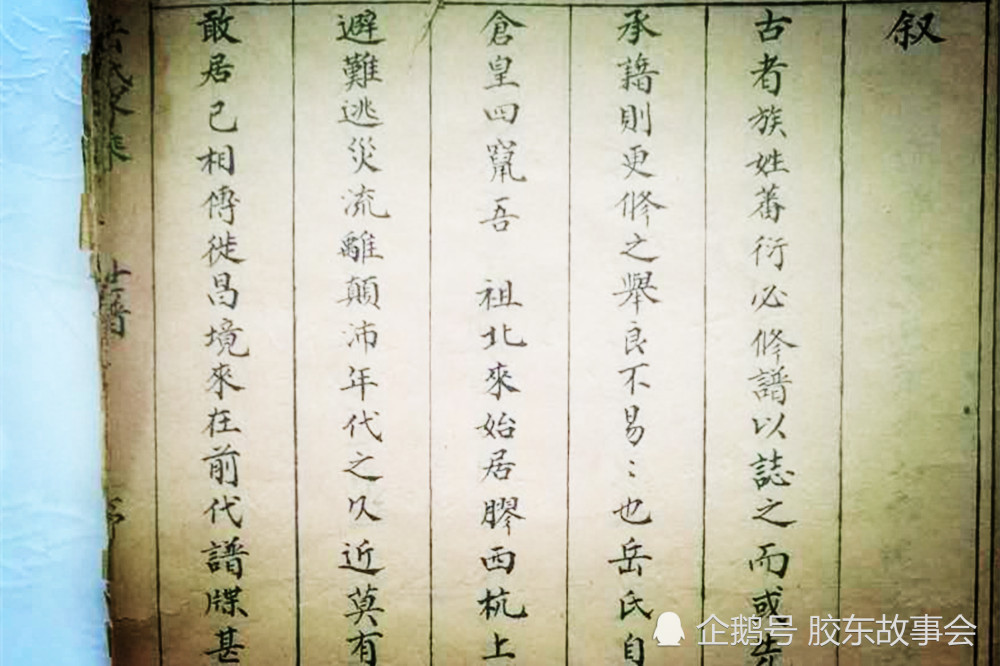 叙
古者族姓蕃衍必修譜以誌之而或先
承藉則更修之舉良不易〻也岳氏自
倉皇四竄吾 祖北來始居膠西杭上
避難逃災流離顛沛年代之久近莫有
敢居己相傳徙昌境來在前代譜牒甚
岳氏家乘
世譜
企鹅号 胶东故事会